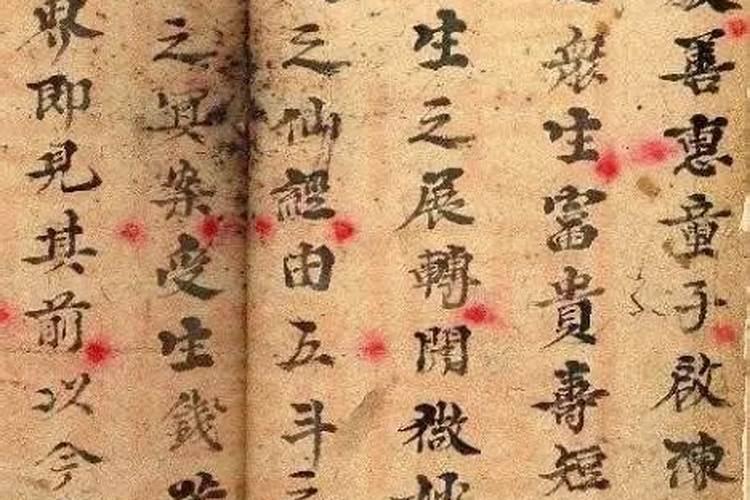 善惠童子啟陳
般生富貴壽短
生之展轉開微妙
之仙經由五斗之
之冥案受生錢
界即見其前以今